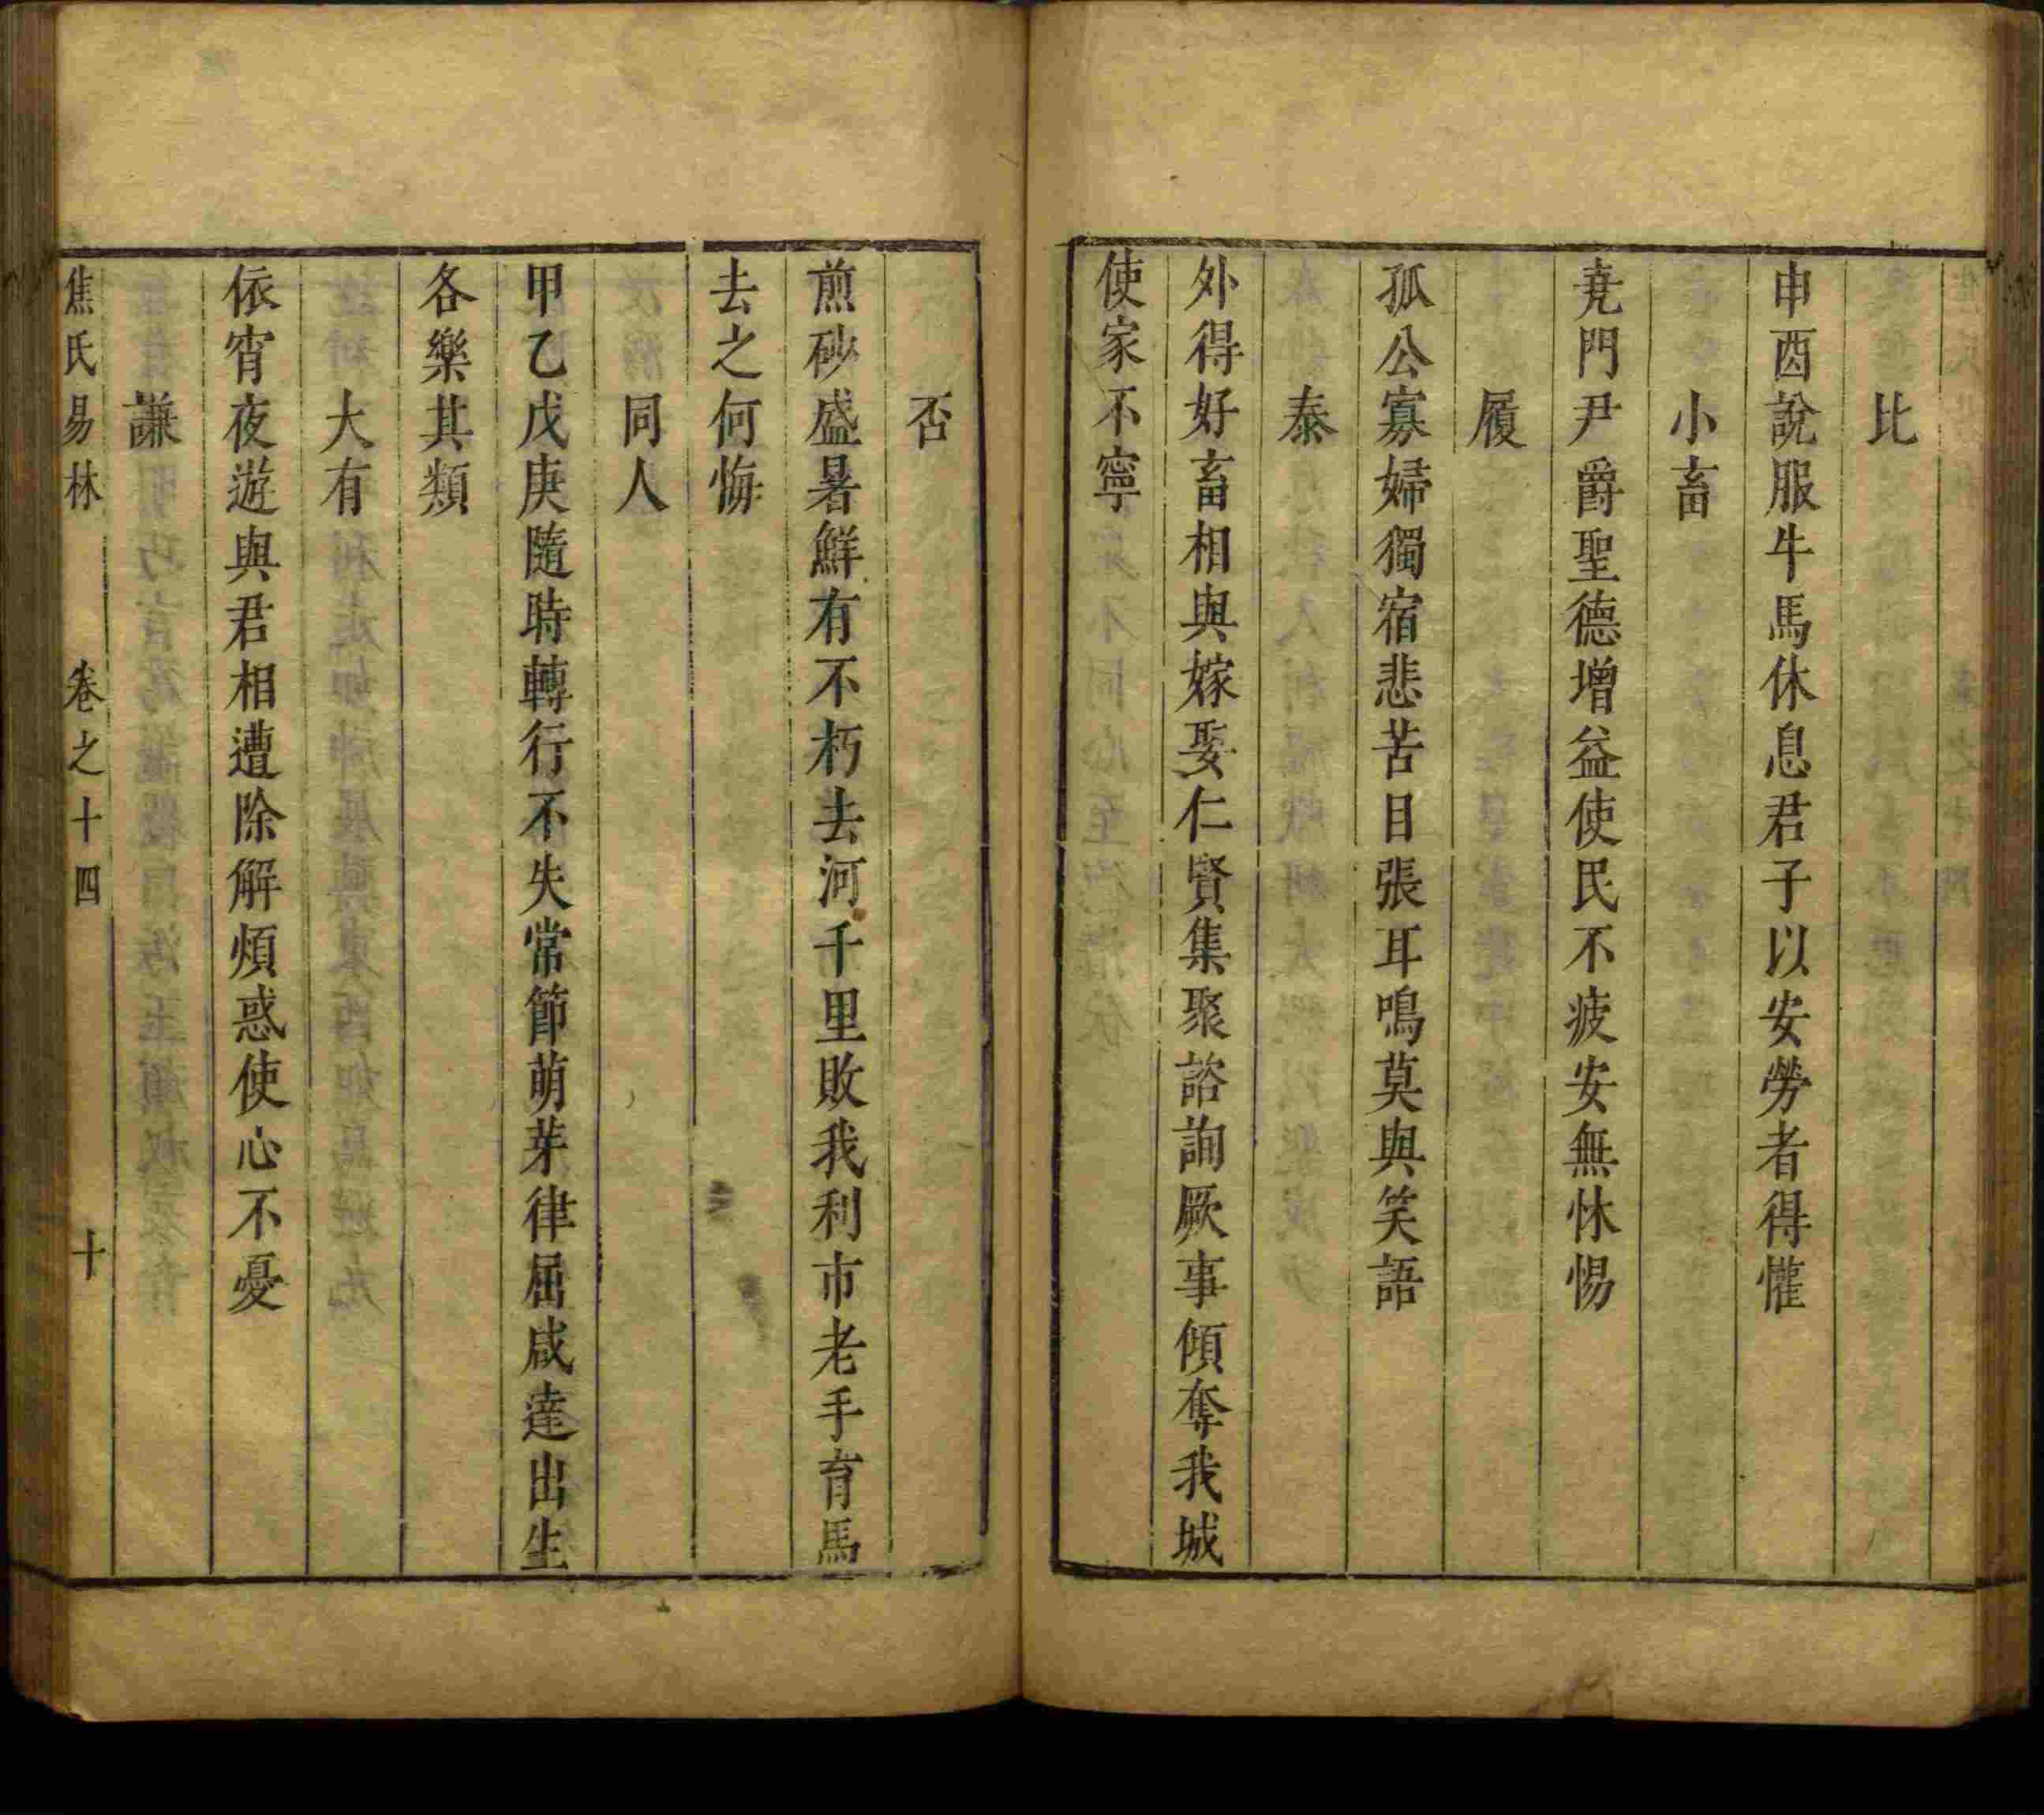 比
申酉說服牛馬休息君子以安勞者得懽
小畜
堯門尹爵聖德增益使民不疲安無怵惕
履
孤公寡婦獨宿悲苦目張耳鳴莫與笑語
泰
外得好畜相與嫁娶仁賢集聚諮詢厥事傾奪我城
使家不寧
否
煎砂盛暑鮮有不朽去河千里敗我利市老手盲馬
去之何悔
同人
甲乙戊庚隨時轉行不失常節萌芽律屈咸達出生
各樂其類
大有
依宵夜遊與君相遭除解煩惑使心不憂
謙
焦氏易林 卷之十四 十